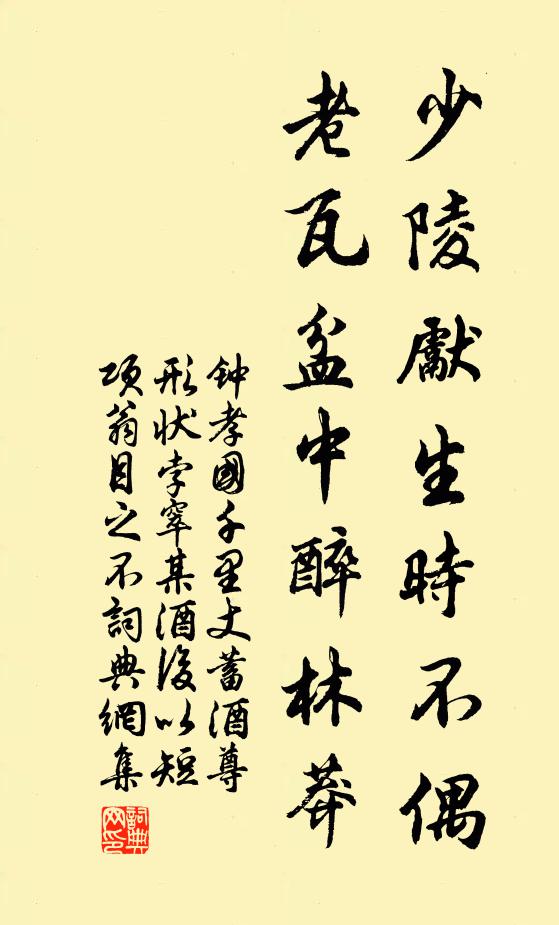 少陵獻生時不偶
老瓦盆中醉林莽
钟孝國千里丈蓄酒尊
形状孛窣某酒後以短
项翁目之不詞典網集
詞典网印